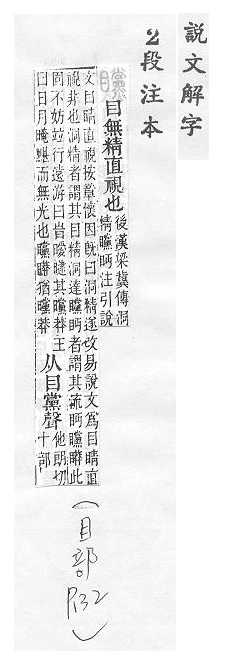 說文解字
2段注本
目無精直視也
後漢梁冀傳洞
精矘眄注引說
文曰睛直視按章懷因旣曰洞精遂改易說文爲目睛直
視非也洞精者謂其目精洞達矘眄者謂其疏眄矘此
尚不妨竝行遠游曰旹曖曃其矘莽王
曰日月晻黮而無光也矘猶矘莽
从目黨聲
他朗切
十部
(目部
P.132)